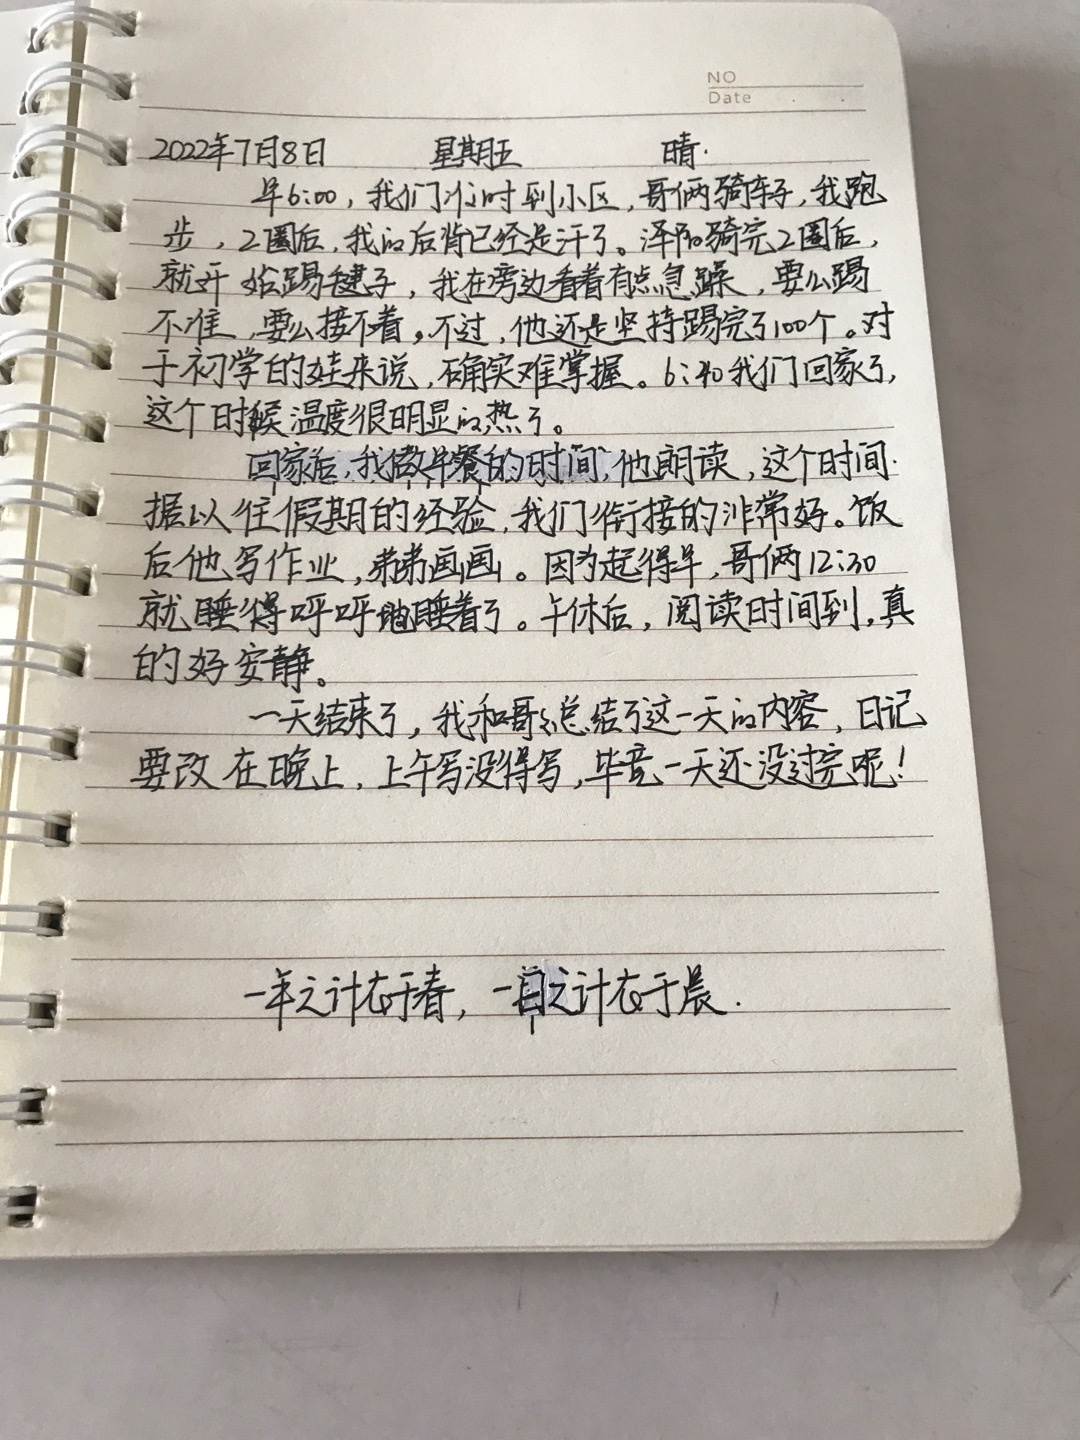 NO
Date
2022年7月8日 星期五 晴.
早6:00，我们准时到小区，哥俩骑车子，我跑
步，2圈后，我的后背已经是汗了。泽阳骑完2圈后，
就开始踢毽子，我在旁边看着有点急躁，要么踢
不准，要么接不着。不过，他还是坚持踢完了100个。对
于初学的娃来说，确实难掌握。6:40我们回家了，
这个时候温度很明显的热了。
回家后，我做早餐的时间，他朗读，这个时间
据以往假期的经验，我们衔接的非常好。饭
后他写作业，弟弟画画。因为起得早，哥俩12:30
就睡得呼呼地睡着了。午休后，阅读时间到，真
的好安静。
一天结束了，我和哥哥总结了这一天的内容，日记
要改在晚上，上午写没得写，毕竟一天还没过完呢！
一年之计在于春，一日之计在于晨.